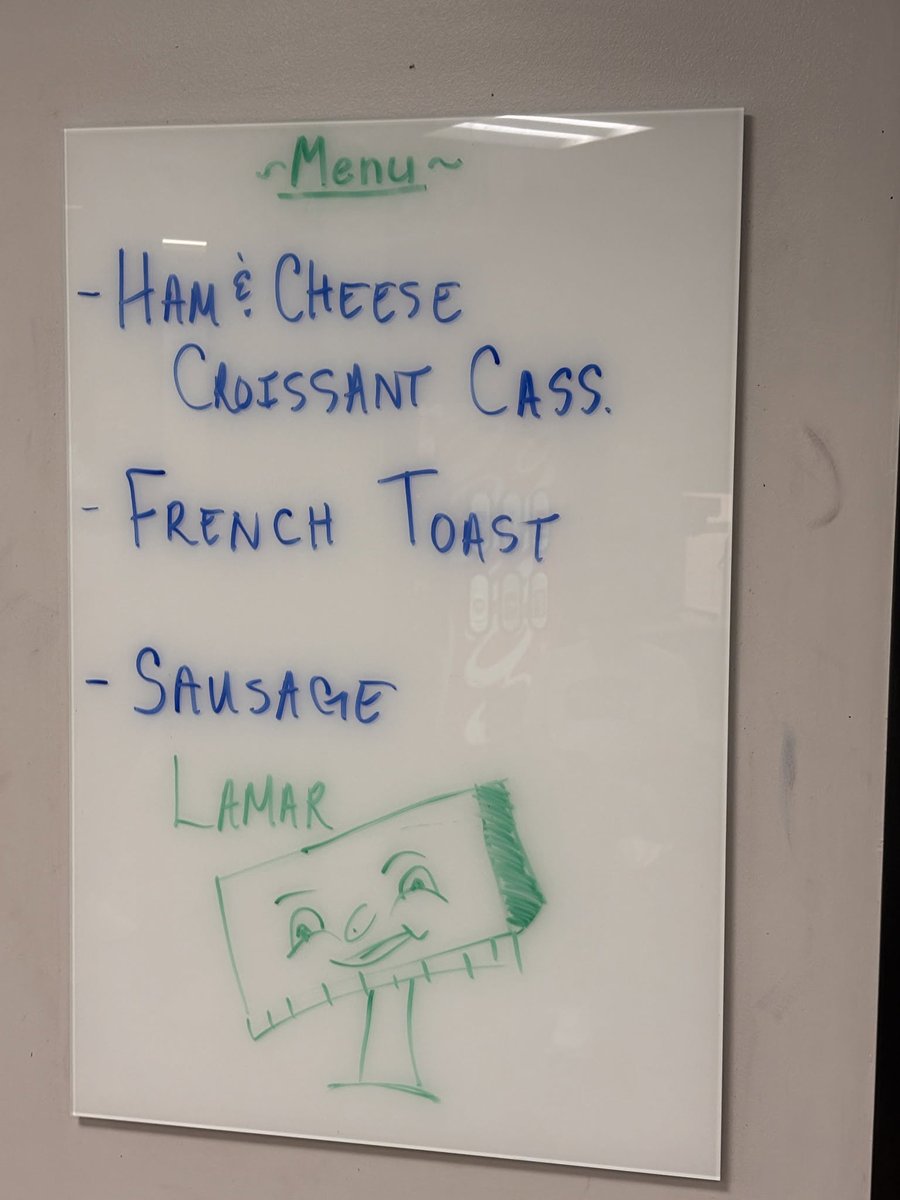 ~Menu~
- HAM & CHEESE
CROISSANT CASS.
- FRENCH TOAST
- SAUSAGE
LAMAR